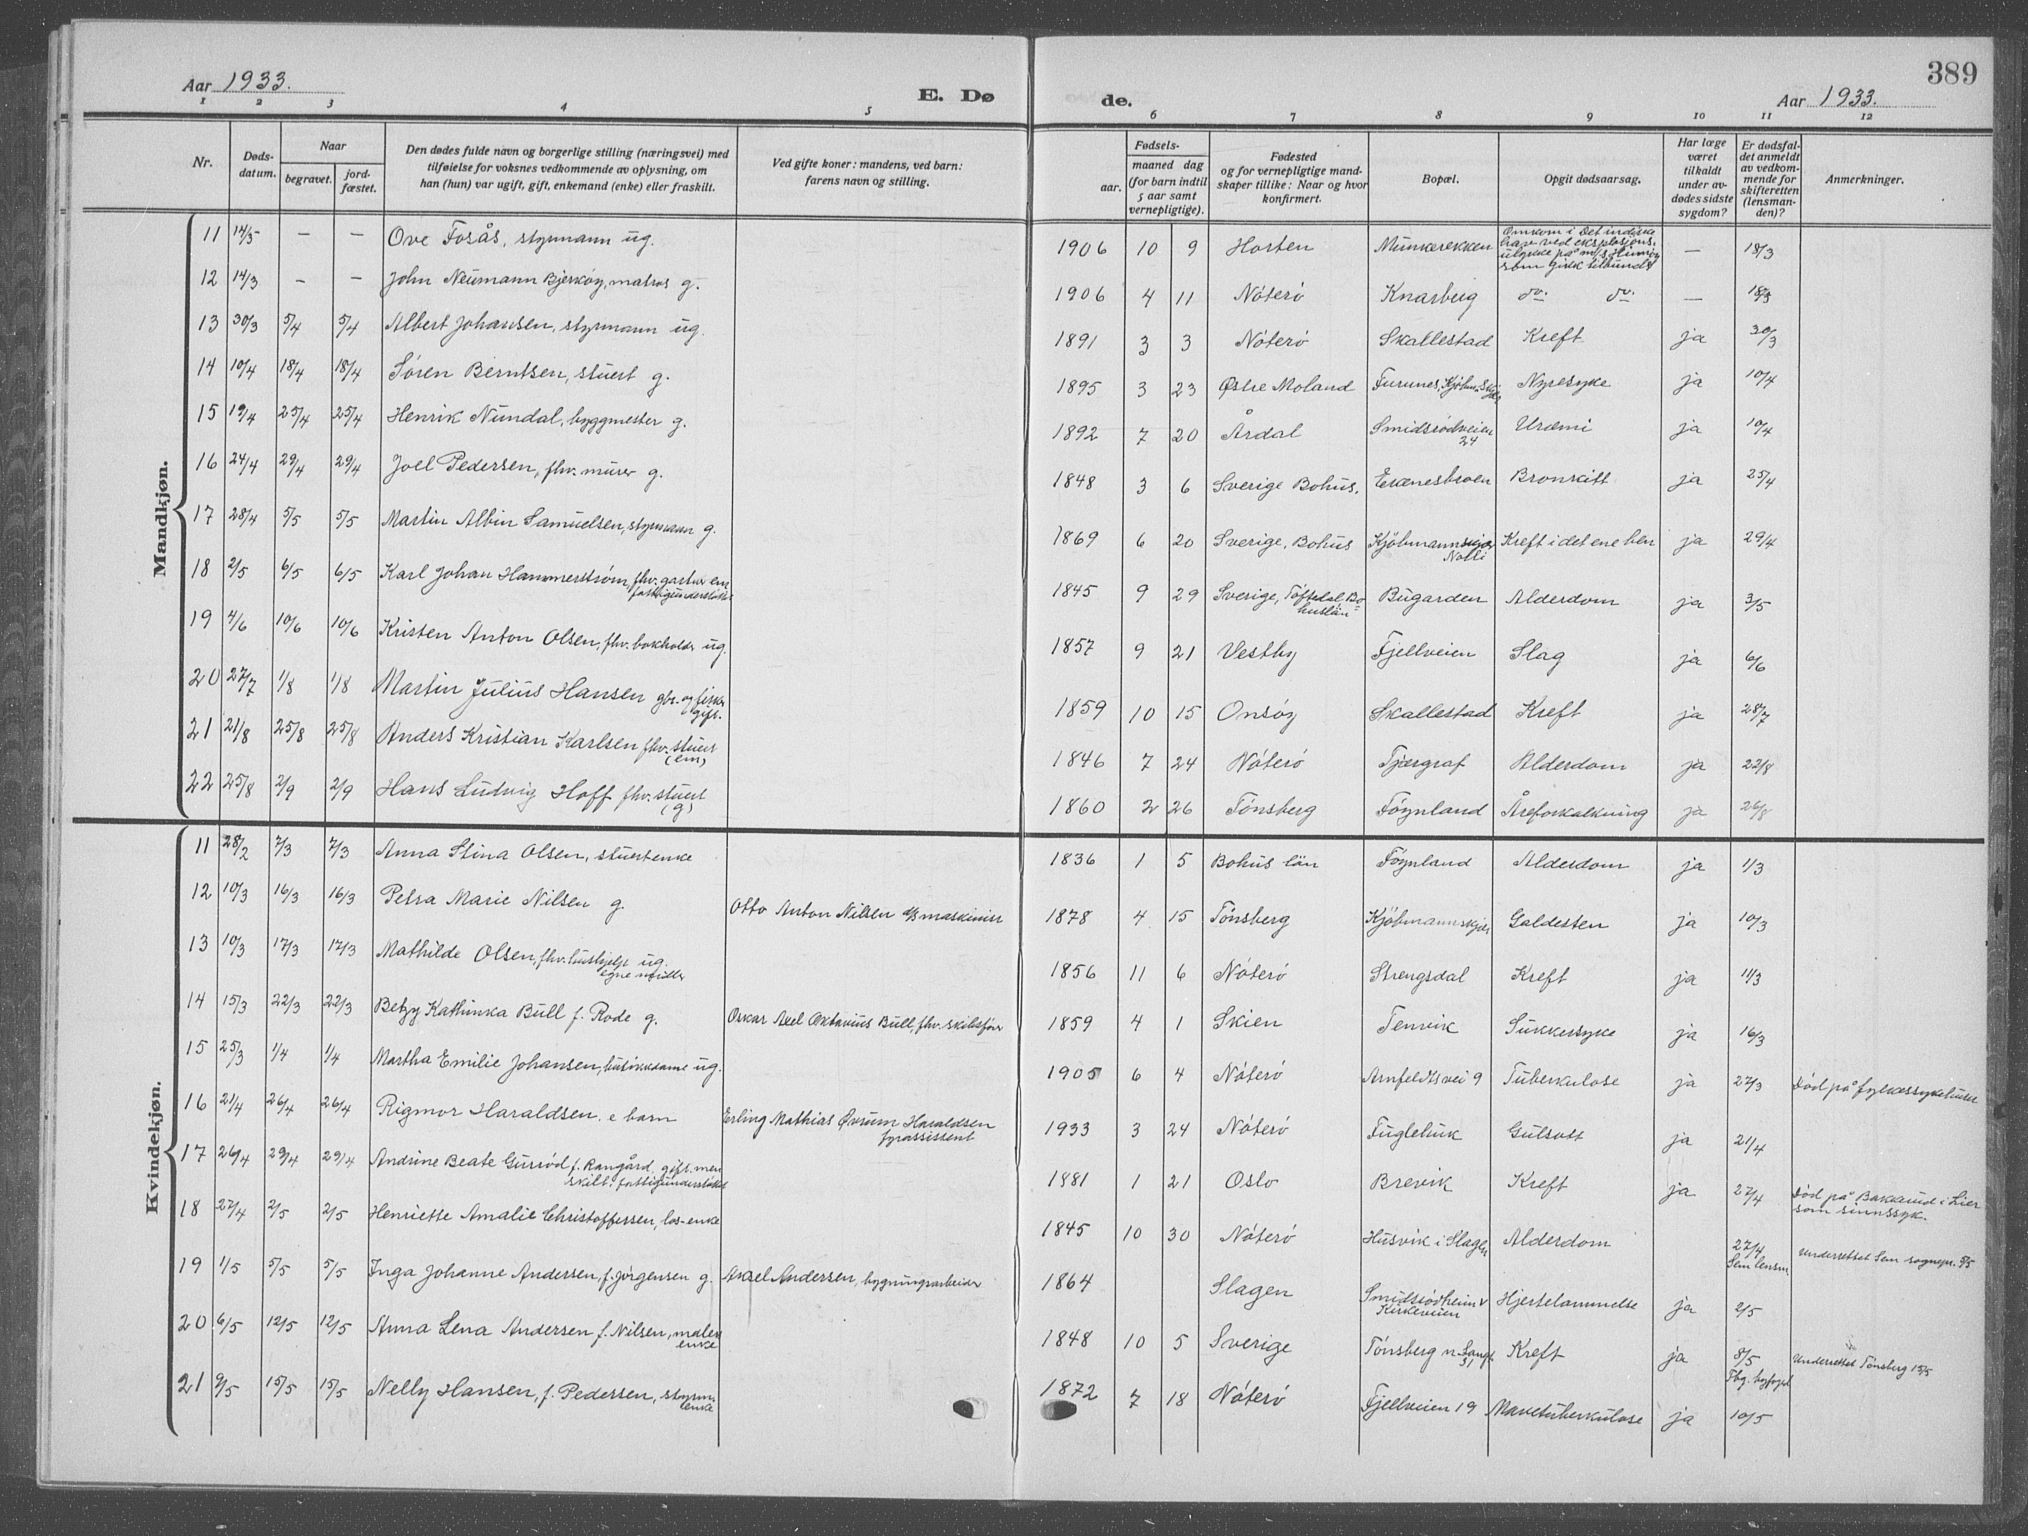 389
Aar 1933.
E. Døde.
Aar 1933.
1 2 3 4 5 6 7 8 9 10 11 12
Nr.
Døds-datum.
Naar
begravet.
jord-fæstet.
Den dødes fulde navn og borgerlige stilling (næringsvei) med
tilføielse for voksnes vedkommende av oplysning, om
han (hun) var ugift, gift, enkemand (enke) eller fraskilt.
Ved gifte koner: mandens, ved barn:
farens navn og stilling.
Fødsels-
aar.
maaned dag
(for barn indtil
5 aar samt
vernepligtige).
Fødested
og for vernepligtige mand-
skaper tillike: Naar og hvor
konfirmert.
Bopæl.
Opgit dødsaarsag.
Har læge
været
tilkaldt
under av-
dødes sidste
sygdom?
Er dødsfal-
det anmeldt
av vedkom-
mende for
skifteretten
(lensman-
den)?
Anmerkninger.
Mandkjøn.
11 14/3 — — Ove Fosås, styrmann ug. 1906 10 9 Horten Munkerekken Omkom i Det indiske hav ved eksplosjonsulykke på m/s som gikk tilbunds — 18/3
12 14/3 — — John Neumann Bjerkøy, matros g. 1906 4 11 Nøterø Knarberg do. do. — 18/3
13 30/3 5/4 5/4 Albert Johansen, styrmann ug. 1891 3 3 Nøterø Skallestad Kreft ja 30/3
14 10/4 18/4 18/4 Søren Berntsen, stuert g. 1895 3 23 Østre Moland Furunes, Kjøbm.skjær Nyresyke ja 10/4
15 19/4 25/4 25/4 Henrik Nundal, byggmester g. 1892 7 20 Årdal Smidsrødveien 24 Uræmi ja 10/4
16 24/4 29/4 29/4 Joel Pedersen, fhv. murer g. 1848 3 6 Sverige Bohus. Ekenesbroen Bronkitt ja 25/4
17 28/4 5/5 5/5 Martin Albin Samuelsen, styrmann g. 1869 6 20 Sverige, Bohus Kjøbmannskjær Nolli Kreft i det ene ben ja 29/4
18 2/5 6/5 6/5 Karl Johan Hammerstrøm, fhv. gartner em fattigunderstøttet 1845 9 29 Sverige, Töftedal Bohuslän Bugarden Alderdom ja 3/5
19 4/6 10/6 10/6 Kristen Anton Olsen, fhv. bokholder ug. 1857 9 21 Vestby Fjellveien Slag ja 6/6
20 27/7 1/8 1/8 Martin Julius Hansen gbr. og fisker gift. 1859 10 15 Onsøy Skallestad Kreft ja 28/7
21 21/8 25/8 25/8 Anders Kristian Karlsen fhv. stuert (em) 1846 7 24 Nøterø Tjærgraf Alderdom ja 22/8
22 25/8 2/9 2/9 Hans Ludvig Hoff fhv. stuert (g) 1860 2 26 Tønsberg Føynland Åreforkalkning ja 26/8
Kvindekjøn.
11 28/2 7/3 7/3 Anna Stina Olsen, stuertenke 1836 1 5 Bohus län Føynland Alderdom ja 1/3
12 10/3 16/3 16/3 Petra Marie Nilsen g. Otto Anton Nilsen d/s maskinist 1878 4 15 Tønsberg Kjøbmannskjær Galdesten ja 10/3
13 10/3 17/3 17/3 Mathilde Olsen, fhv. hushjelp ug. egne midler 1856 11 6 Nøterø Strengsdal Kreft ja 11/3
14 15/3 22/3 22/3 Betzy Kathinka Bull f. Rode g. Oskar Axel Oktavius Bull, fhv. skibsfører 1859 4 1 Skien Tenvik Sukkersyke ja 16/3
15 25/3 1/4 1/4 Martha Emilie Johansen, butikkdame ug. 1905 6 4 Nøterø Arnfeldtsvei 9 Tuberkulose ja 27/3 Død på fylkessykehuset
16 21/4 26/4 26/4 Rigmor Haraldsen. e barn Erling Mathias Øvrum Haraldsen fyrassistent 1933 3 24 Nøterø Fuglehuk Gulsott ja 21/4
17 26/4 29/4 29/4 Andrine Beate Gusrød f. Rangård. gift. men skilt. fattigunderstøttet 1881 1 21 Oslo Brevik Kreft ja 27/4 Død på Bakkerud i Lier som sinnssyk.
18 27/4 2/5 2/5 Henriette Amalie Christoffersen, los-enke 1845 10 30 Nøterø Husvik i Slagen Alderdom 27/4 Sem lensm. Underrettet Sem sognepr. 9/5
19 1/5 5/5 5/5 Inga Johanne Andersen, f. Jørgensen g. Axel Andersen, bygningsarbeider 1864 Slagen Smidsrødheim v Kirkeveien Hjertelammelse ja 2/5
20 6/5 12/5 12/5 Anna Lena Andersen f. Nilsen, maler enke 1848 10 5 Sverige Tønsberg n. Langt. 31 Kreft ja 8/5 Tbg. byfogd Underrettet Tønsberg 15/5
21 9/5 15/5 15/5 Nelly Hansen, f. Pedersen, styrm. enke 1872 7 18 Nøterø Fjellveien 19 Mavetuberkulose ja 10/5